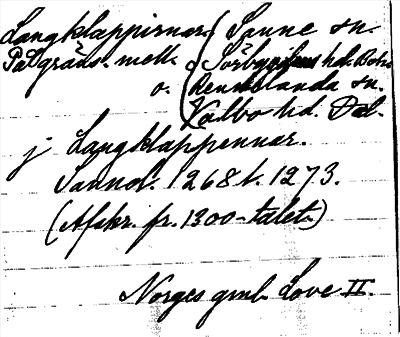 Langklappirnar. ( Sanne sn.
På gräns. mell. Sörbygdens hd. Boh.
o. Rennelanda sn.
Valbo hd. Dal.
j Langklappennar.
Sannol. 1268 l. 1273.
(Afskr. fr. 1300-talet.)
Norges gml. Love II.